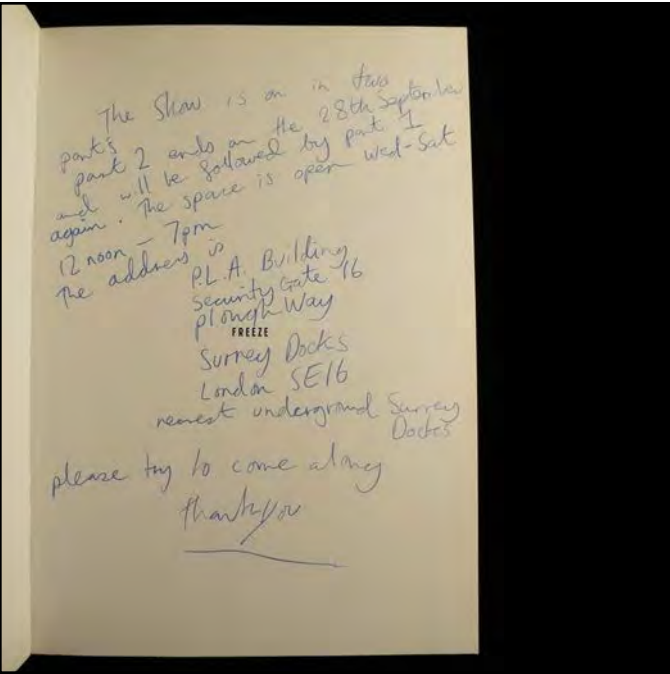 The Show is on in two
parts
part 2 ends on the 28th September
and will be followed by part 1
again. The space is open wed-Sat
12 noon - 7pm
The address is
P.L.A. Building
Security Gate 16
plough Way
FREEZE
Surrey Docks
London SE16
nearest underground Surrey
Docks
please try to come along
thankyou